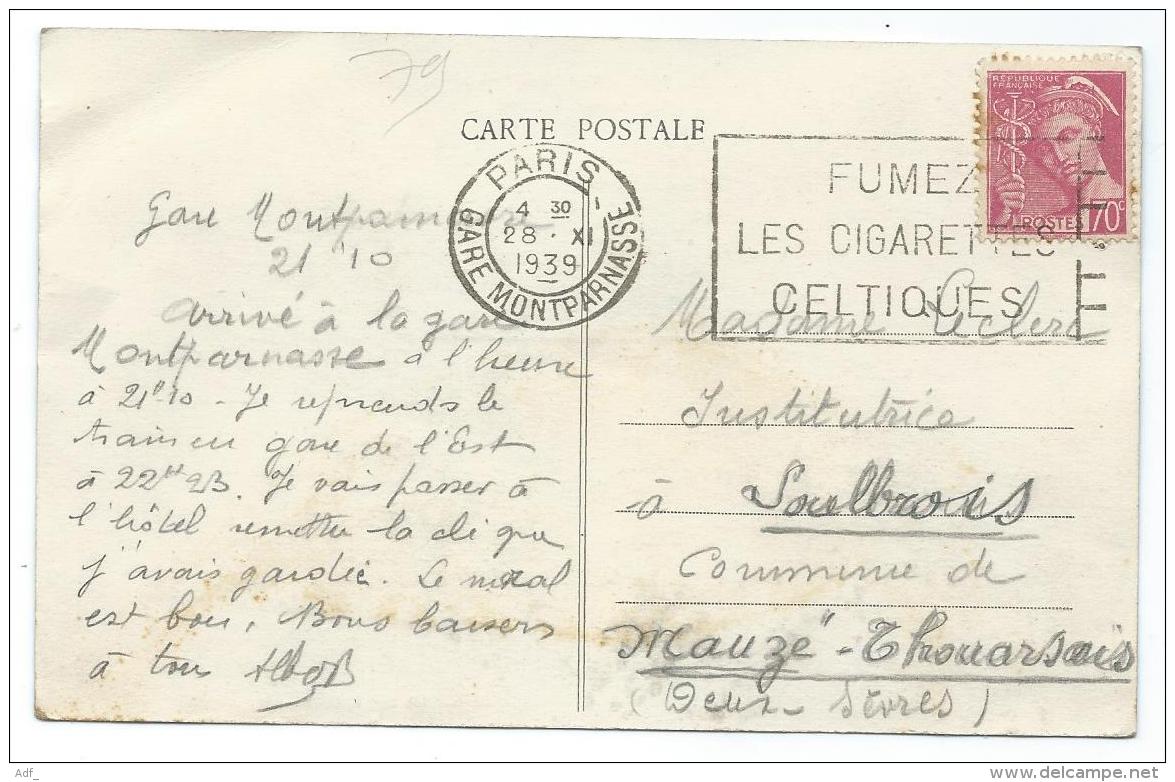 79
CARTE POSTALE
RÉPUBLIQUE
FRANÇAISE
POSTES 70c
PARIS
4 30
28 · XI
1939
GARE MONTPARNASSE
FUMEZ
LES CIGARETTES
CELTIQUES
Gare Montparnasse
21 H 10
Arrivé à la gare
Montparnasse à l'heure
à 21H10 - Je reprends le
train en gare de l'Est
à 22H23. Je vais passer à
l'hôtel remettre la clé que
j'avais gardée. Le moral
est bon. Bons baisers
à tous
Madame Leclerc
Institutrice
à Soulbrois
Commune de
Mauzé - Thouarsais
(Deux-Sèvres)
Adf_
delcampe.net